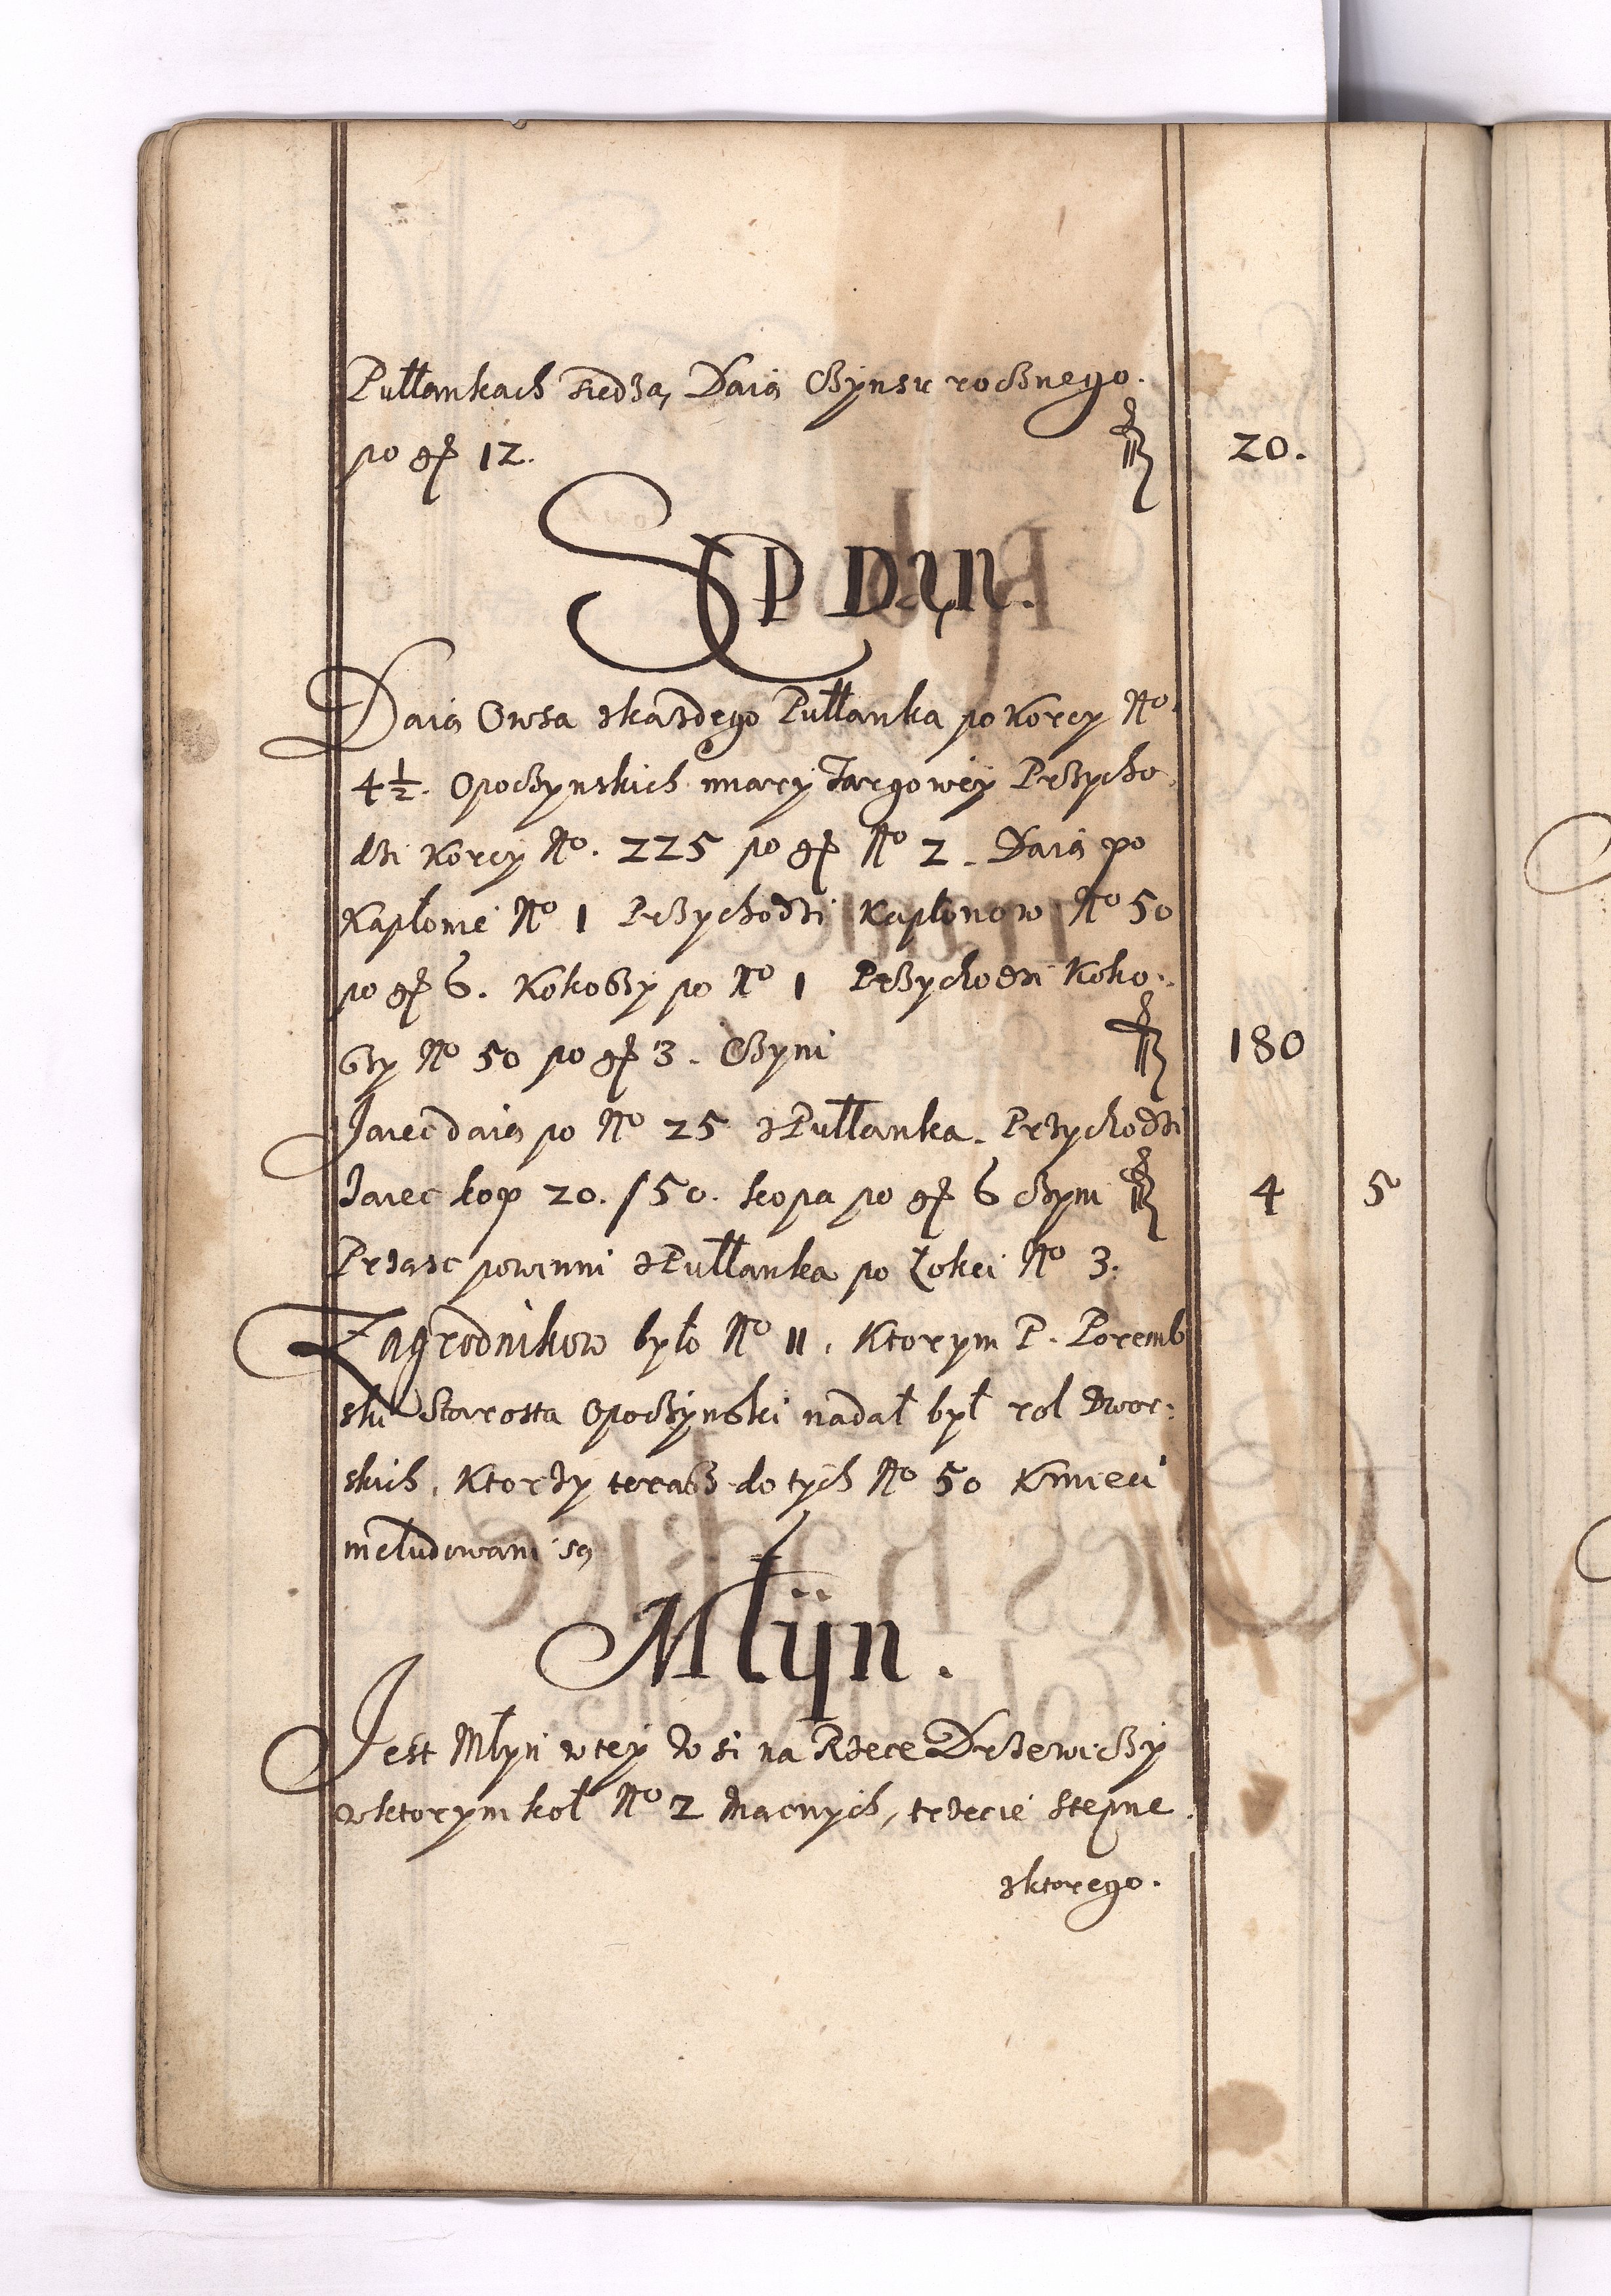 Pułłankach siedzą, Daią Czynsu rocznego.
po gr 12. fl 20.
SEP DYN.
Daią Owsa zkazdego Pułłanka po Korcy No
4½. Opoczynskich miary Targowey Przycho
dzi Korcy No. 225 po gr No 2. Daią po
Kapłonie No 1 Przychodzi Kapłonow No 50
po gr 6. Kokoszy po No 1 Przychodzi Koko:
szy No 50 po gr 3. Czyni fl 180
Jaiec daią po No 25 z Pułłanka. Przychodzi
Jaiec kop 20. /50. kopa po gr 6 czyni fl 4 5
Prząsc powinni z Pułłanka po Łokci No 3.
Zagrodnikow było No 11. Ktorym P. Poremb
ski Starosta Opoczynski nadał był rol Dwor:
skich, Ktorzy terasz do tych No 50 Kmieci
includowani są
Młÿn.
Jest Młyn w tey Wsi na Rzece Drzewiczy
w ktorym koł No 2 Mącnych, trzecie stępne.
z ktorego.